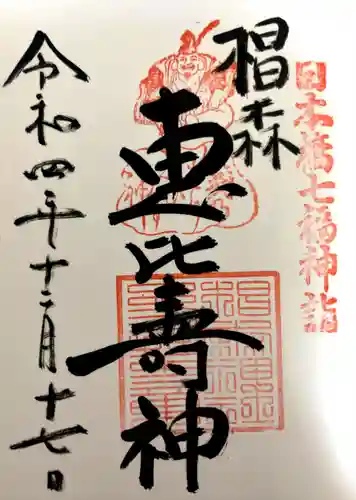 日本橋七福神詣
椙森
恵比壽神
令和四年十二月十七日